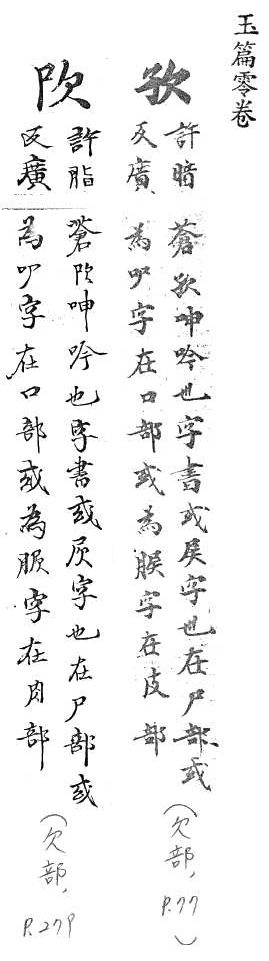 玉篇零卷
許暗
反廣
蒼呻吟也字書或字也在尸部或
為字在口部或為字在皮部
(欠部, P.77)
許脂
反廣
蒼呻吟也字書或字也在尸部或
為字在口部或為字在肉部
(欠部, P.279